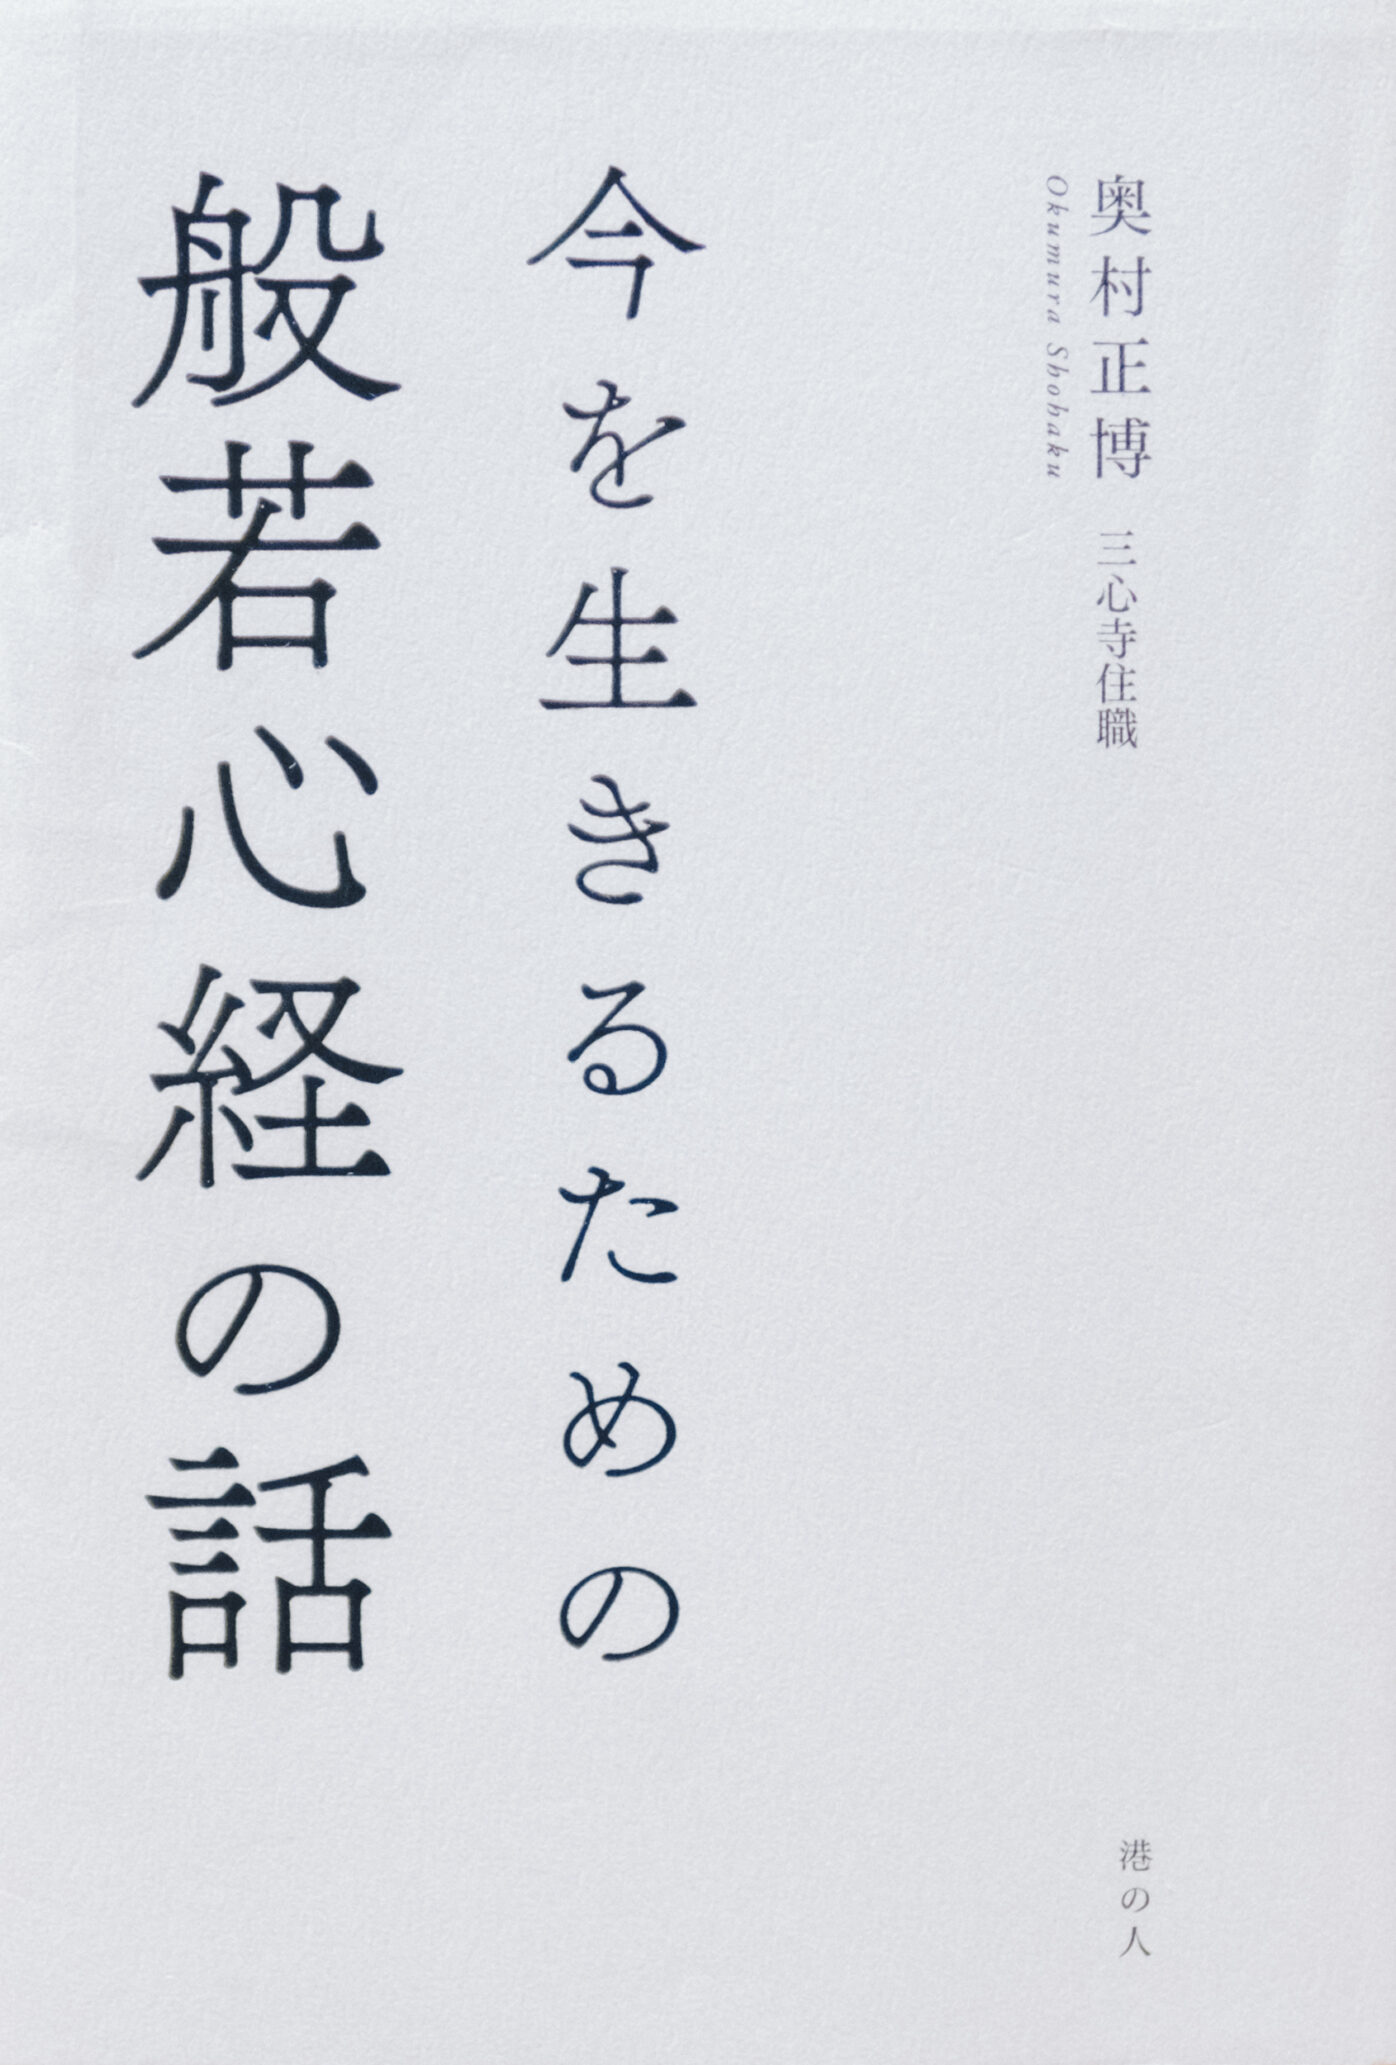 奥村正博 三心寺住職
Okumura Shohaku
今を生きるための
般若心経の話
港の人